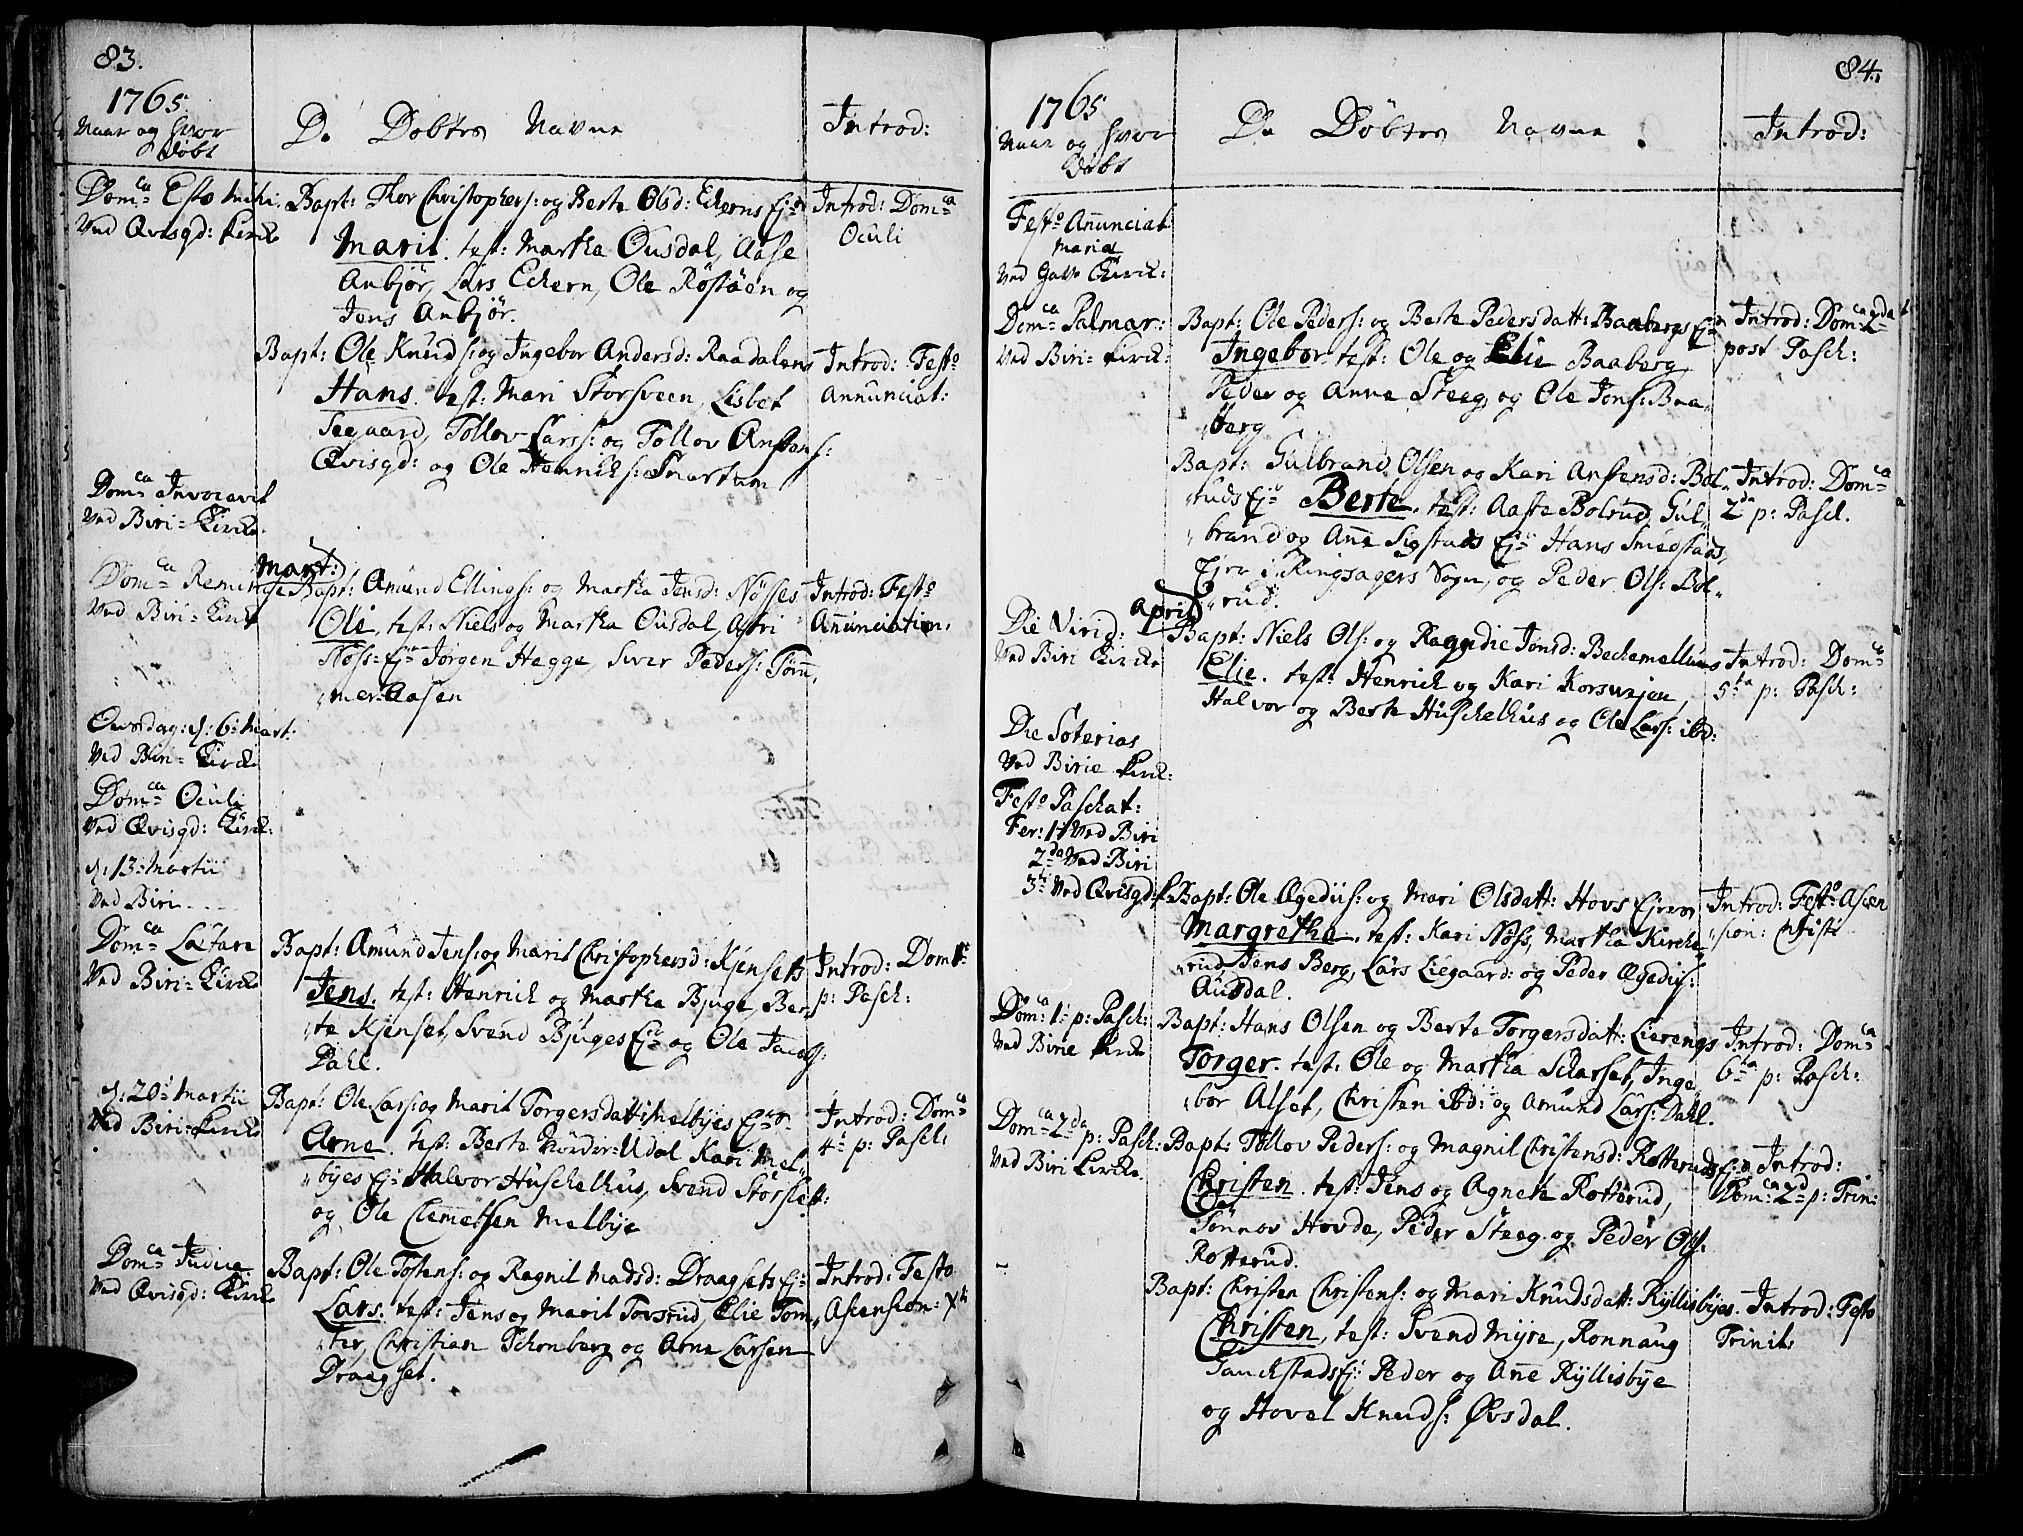 83.
1765.
Naar og hvor
Døbt
De Døbtes Navne
Introd:
Dom:ca Esto mihi.
Ved Qvisgd: Kirck
Bapt: Thor Christophers: og Berte Olsd: Echerns Ejer
Marit. test: Martha Ousdal, Aase
Anbjør, Lars Echern, Ole Röstöen og
Jens Anbjør.
Introd: Dom:ca
Oculi
Bapt: Ole Knuds: og Ingebor Andersd: Raadalens
Hans. test: Mari Storsveen, Lisbet
Seegaard, Tollov Larss: og Tollov Anstens:
Qvisgd: og Ole Henrichs: Snartum
Introd: Festo
Annunciat:
Dom:ca Invocavit
Ved Biri = Kircke.
Mart:
Dom:ca Reminisce
Ved Biri = Kirck
Bapt: Amund Ellings: og Martha Jensd: Nösses
Ole, test: Niels og Martha Ousdal, Astri
Nöss: Ejer Jörgen Hegge, Siver Peders: Tömm,
mer: Aasen
Introd: Festo
Annunciation:
Onsdag: d: 6: Mart:
Ved Biri = Kirck
Dom:ca Oculi
Ved Qvisgd: Kirck:
d: 13: Martii
Ved Biri
Dom:ca Lætare
Ved Biri = Kircke
Bapt: Amund Jens: og Marit Christophersd: Kjensets
Jens. test: Henrich og Martha Bjuge, Ber,
te Kjenset, Svend Bjuges Ejer og Ole Jacobs:
Dahl.
Introd: Dom: 1
p: Pasch:
d: 20: Martii
Ved Biri = Kircke
Bapt: Ole Lars: og Marit Torgersdatt: Melbyes Ejer
Arne. test: Berte Nordre Udal, Kari Mel,
byes Ejer Halvor Huschelhus, Svend Storslet:
og Ole Clemetsen Melbye
Introd: Dom:ca
4 p: Pasch:
Dom:ca Judica
Ved Qvisgd: Kircke
Bapt: Ole Tostens: og Ragnil Madsd: Draagsets Ej:
Lars. test: Jens og Marit Tovsrud, Elie Tom,
ter, Christian Schonberg og Arne Larsen
Draagset.
Introd: Festo
Ascension: Xti
84.
1765
Naar og hvor
Døbt
De Döbtes Navne.
Introd:
Festo Annunciat
Mariæ
Ved Kirck:
Dom:ca Palmar:
Ved Biri = Kirck:
Bapt: Ole Peders: og Berte Pedersdatt: Baabergs Ejer
Ingebor. test: Ole og Elie Baaberg
Peder og Anne Steeg og Ole Jens: Baa,
berg
Introd: Dom:ca 2da
post Pasch:
Bapt: Gulbrand Olsen og Kari Anstensd: Bol,
ruds Ejer Berte. test: Aaste Bolrud, Gul,
brand og Anne Sigstads Ejer Hans Smedstads
Ejer i Ringsagers Sogn, og Peder Ols: Bol,
rud.
Introd: Dom:ca
2da p: Pasch.
April
Die Virid:
Ved Biri Kircke
Bapt: Niels Ols: og Ragndie Jonsd: Bechemellums
Elie. test: Henrich og Kari Korsvejen,
Halvor og Berte Huschelhus og Ole Lars: ibd:
Introd: Dom:ca
5ta p: Pasch:
Die Soterias
Ved Birie Kirck:
Festo Paschat:
Fer: 1 Ved Biri
2da Ved Biri
3 Ved Qvisgd:
Bapt: Ole Ægedius: og Mari Olsdatt: Hovs Ejere
Margretha. test: Kari Nöss, Martha Kircke,
rud, Jens Berg, Lars Liegaard: og Peder Ægedius:
Ausdal.
Introd: Festo Ascen
sion: Christi
Dom:ca 1 p: Pasch:
Ved Birie Kircke
Bapt: Hans Olsen og Berte Torgersdatt: Lierengs
Torger. test: Ole og Martha Scharset, Inge,
bor Alset, Christen ibd: og Amund Lars: Dahl.
Introd: Dom:ca
6ta p: Pasch:
Dom:ca 2da p: Pasch:
Ved Biri Kircke.
Bapt: Tollov Peders: og Magnil Christensd: Rotteruds Ejer
Christen. test: Jens og Agnete Rotterud,
Tönnov Hovde, Peder Steeg og Peder Ols:
Rotterud.
Introd:
Dom:ca 2d p: Trin:
Bapt: Christen Christens: og Mari Knudsdatt: Ryllisbyes.
Christen, test: Svend Myre, Ronnaug
Ejer Peder og Anne Ryllisbye
og Hovel Knuds: Övsdal.
Introd: Festo
Trinit: